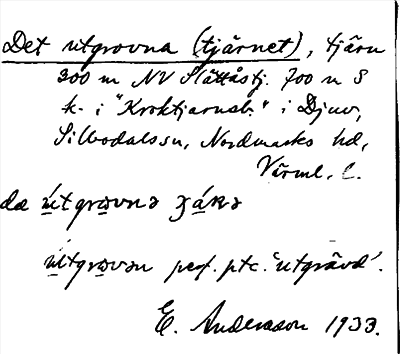 Det utgrovna (tjärnet), tjärn
300 m NV Slättåstj. 700 m S
k. i "Kroktjärnsb." i Djuv,
Silbodals sn, Nordmarks hd,
Värml. l.
da útgrovnə
útgrovən perf. ptc. 'utgrävd'.
E. Andersson 1933.